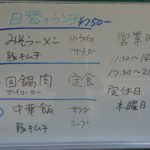 日替ランチ 750-
みそラーメン 小ライス
豚キムチ サラダ
回鍋肉 定食
ホイコーロー
中華飯 サラダ
豚キムチ スープ
営業
11:30~14
17:30~21
定休日
木曜日